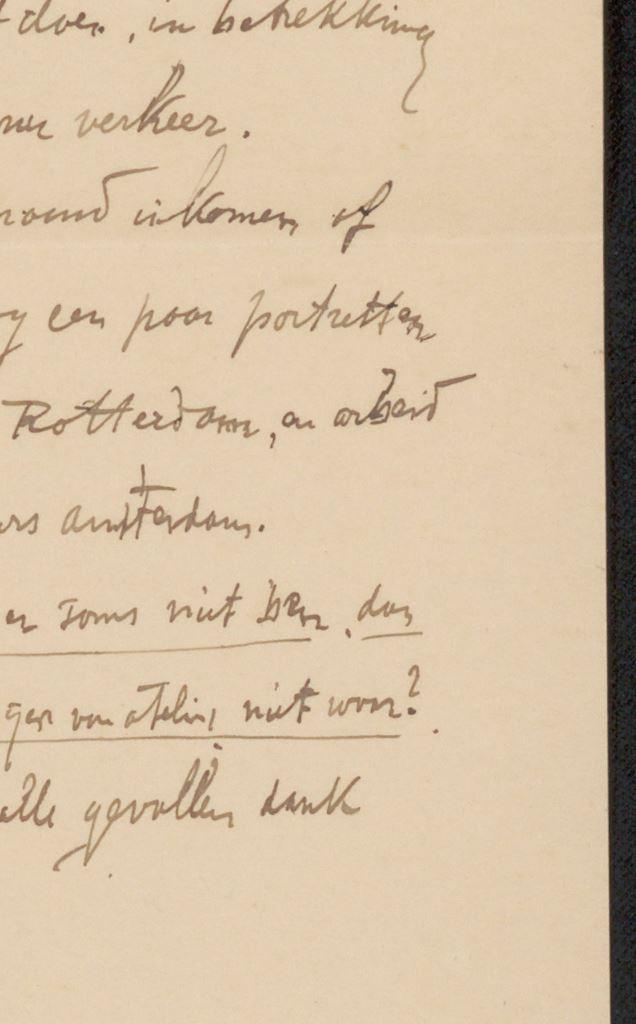 doen, in betrekking
verkeer.
inkomen of
een paar portretten
Rotterdam, en arbeid
Amsterdam.
er soms niet ben, dan
van atelier, niet waar?
alle gevallen dank